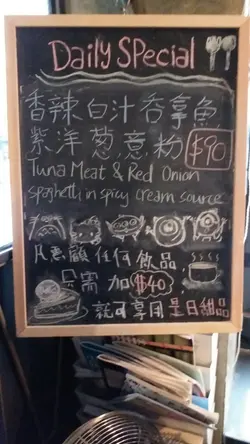 Daily Special
香辣白汁吞拿魚
紫洋葱意粉 $90
Tuna Meat & Red Onion
spaghetti in spicy cream source
凡惠顧任何飲品
只需加$40
就可享用是日甜品